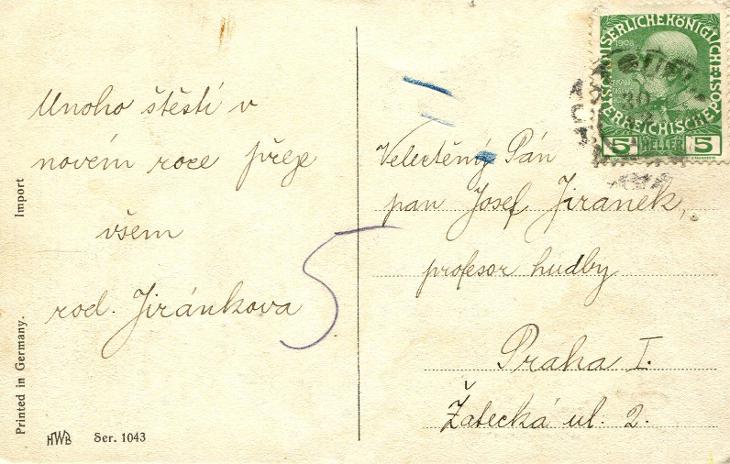 Mnoho štěstí v
novém roce přeje
všem
rod. Jiránkova
5
Velectěný Pán
pan Josef Jiranek,
profesor hudby
Praha I.
Žatecká ul. 2.
Printed in Germany. Import
HWB Ser. 1043
KAISERLICHEKÖNIGLICHE
ÖSTERREICHISCHE POST
1908
5 HELLER 5
30